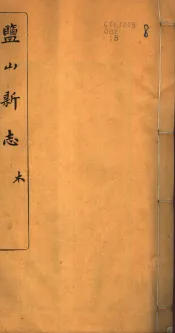 鹽山新志
木
8